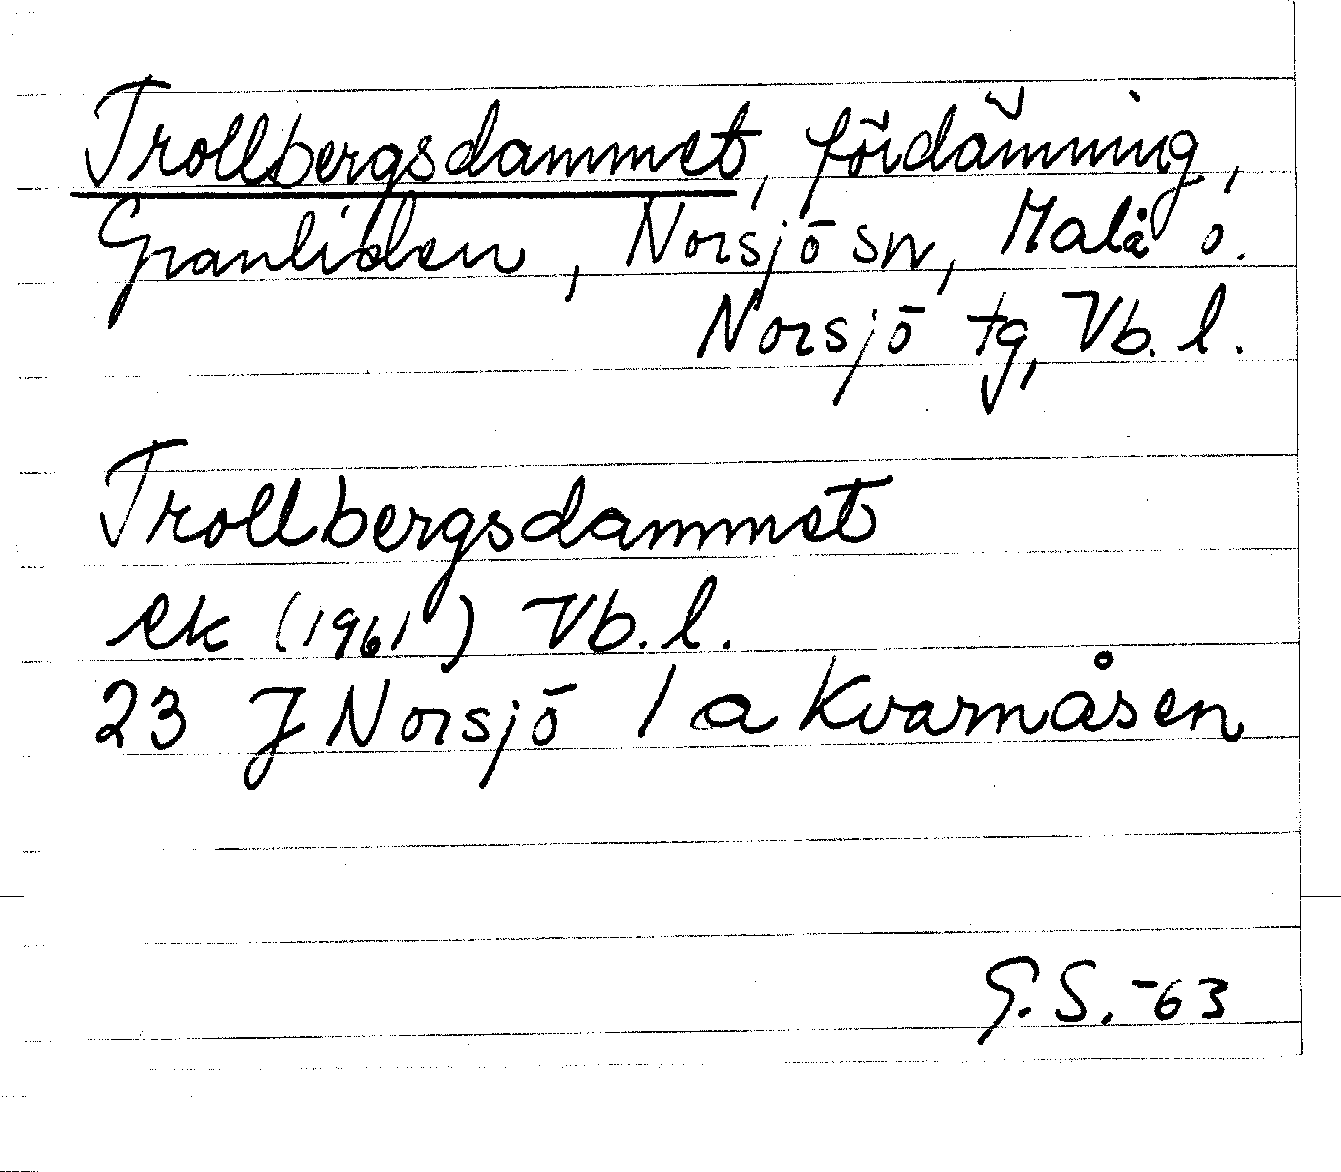 Trollbergsdammet, fördämning,
Granliden, Norsjö sn, Malå o.
Norsjö tg, Vb. l.
Trollbergsdammet
ek (1961) Vb. l.
23 J Norsjö 1 a Kvarnåsen
G. S. -63